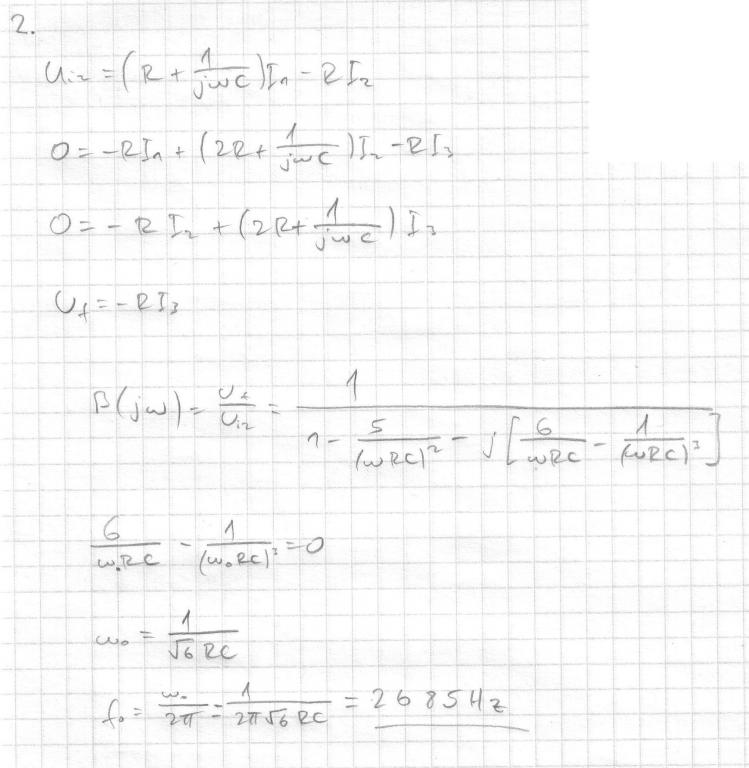 2.
U_iz = (R + 1/(jωC)) I_1 - R I_2
0 = -R I_1 + (2R + 1/(jωC)) I_2 - R I_3
0 = - R I_2 + (2R + 1/(jωC)) I_3
U_f = -R I_3
B(jω) = U_f/U_iz = 1/(1 - 5/(ωRC)^2 - j[6/(ωRC) - 1/(ωRC)^3])
6/(ω_0RC) - 1/(ω_0RC)^3 = 0
ω_0 = 1/(√6 RC)
f_0 = ω_0/(2π) = 1/(2π√6 RC) = 2685Hz